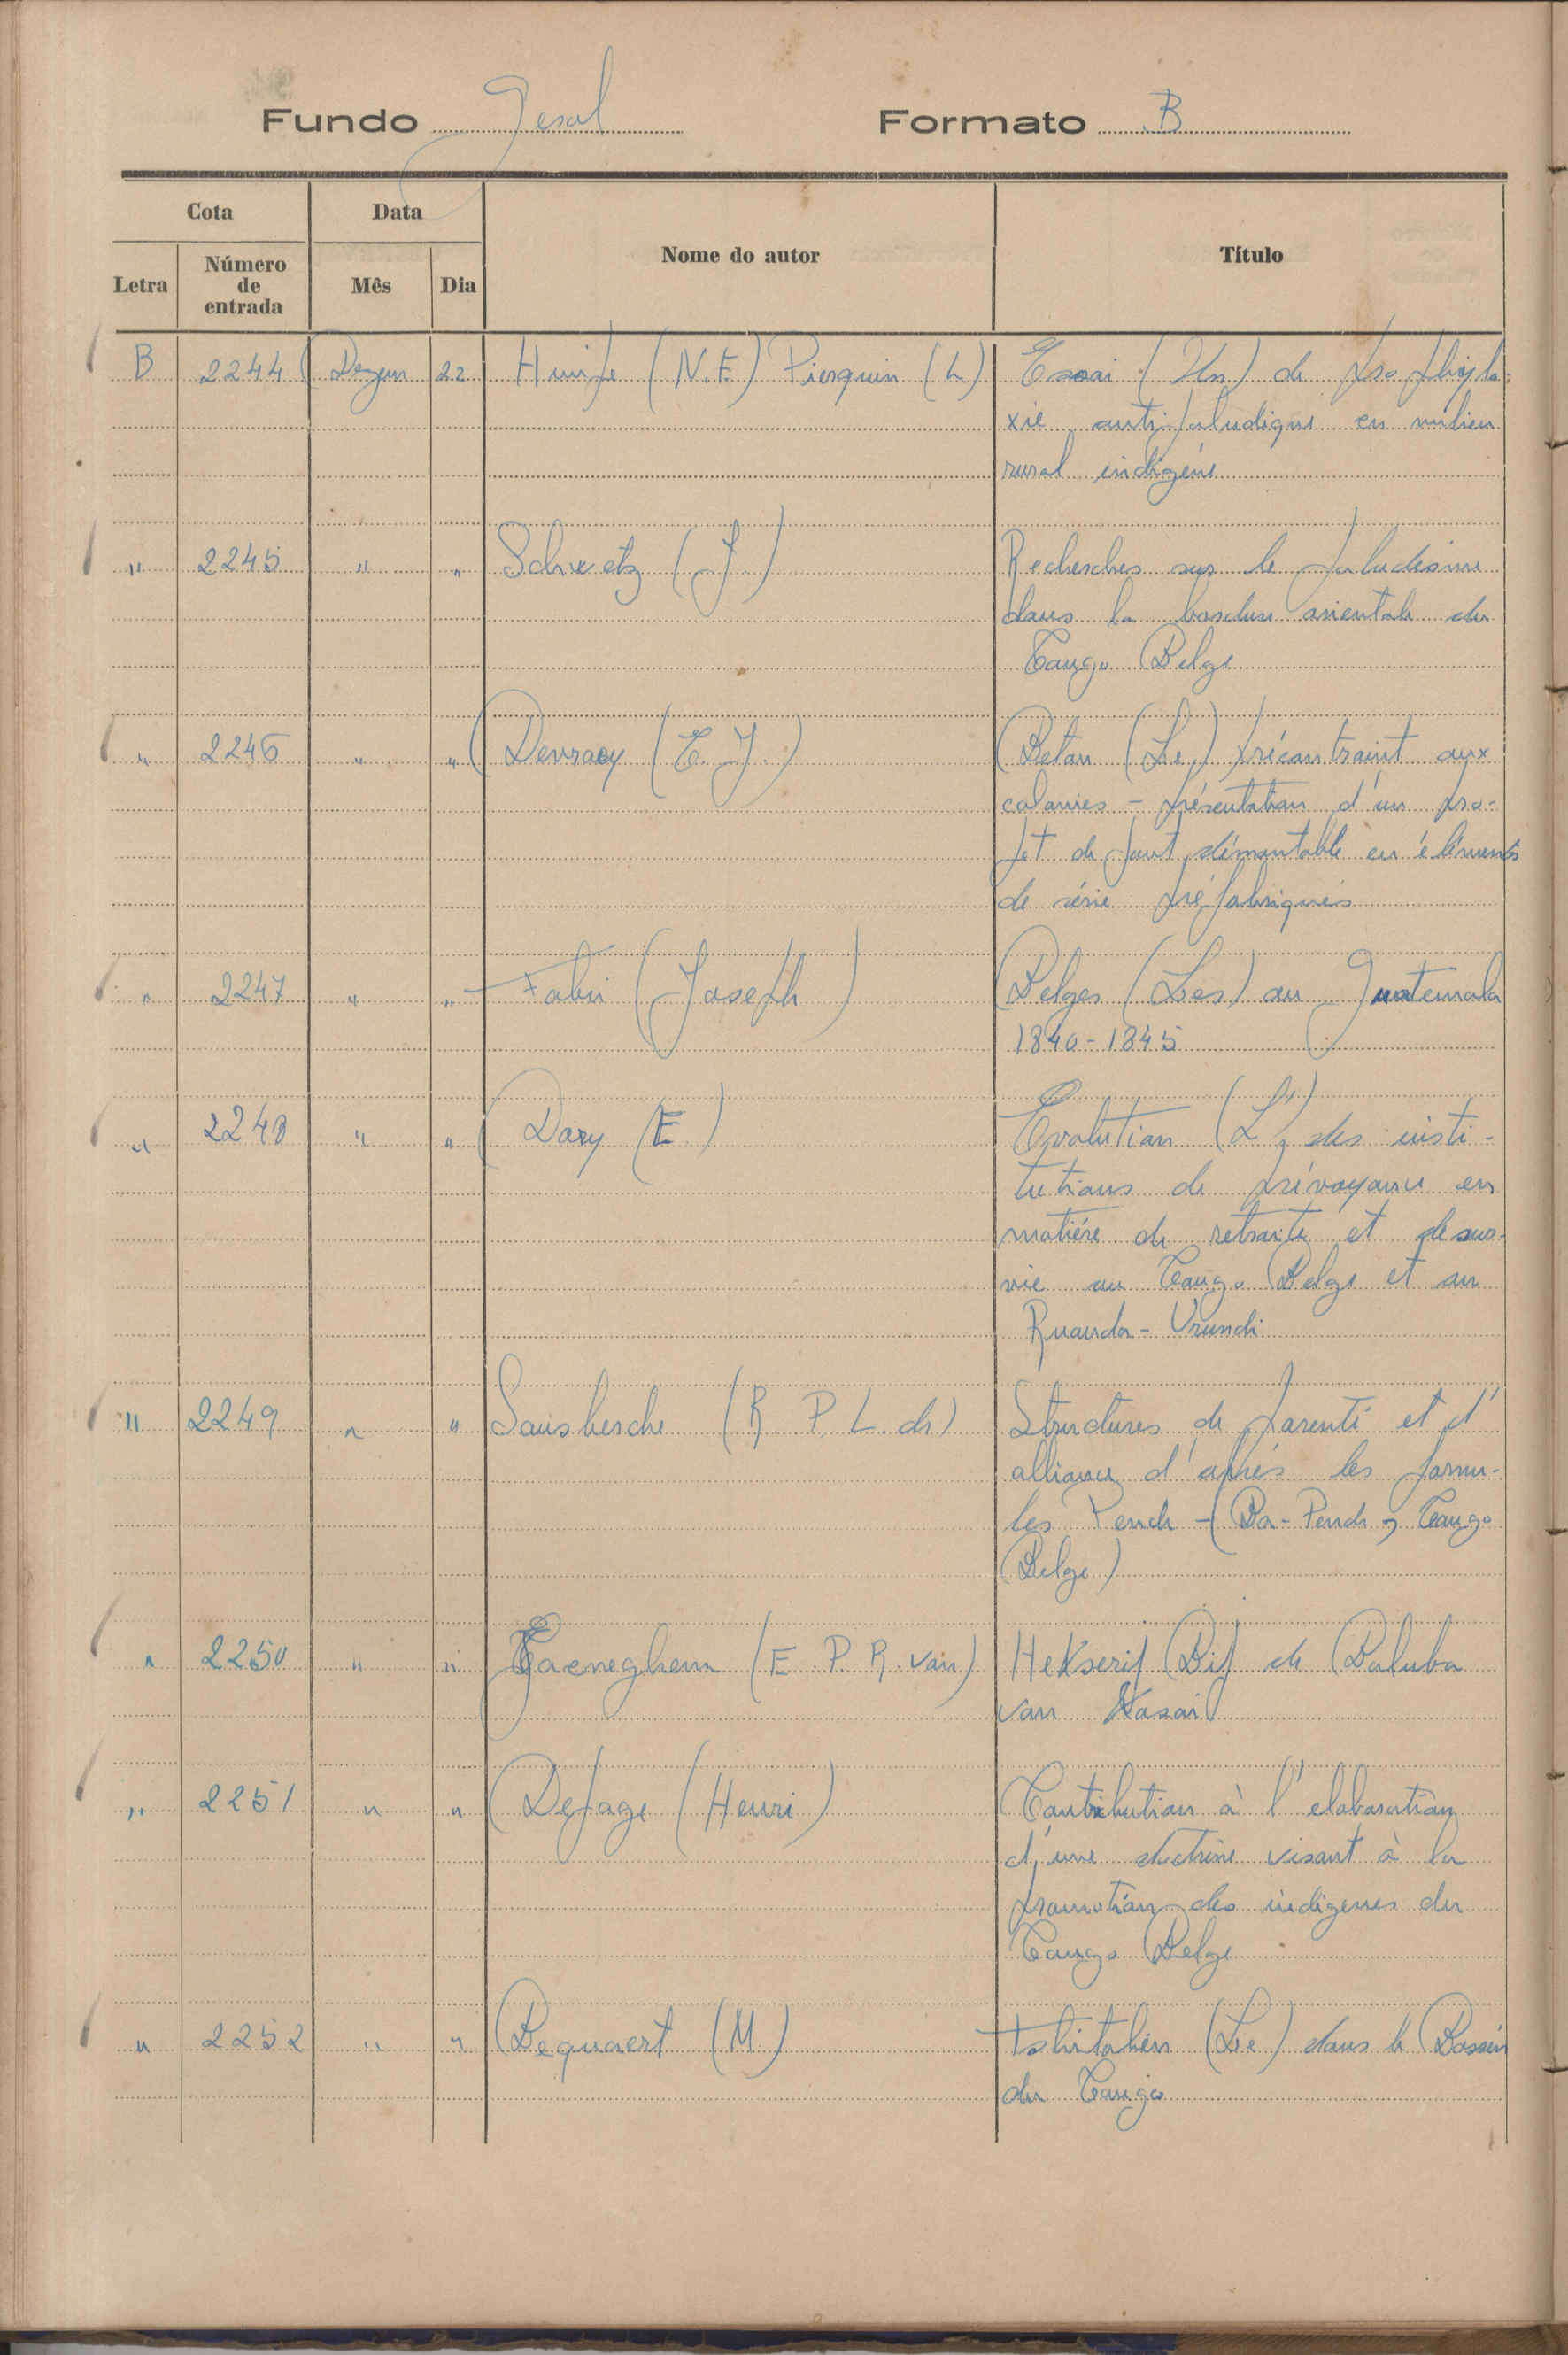 Fundo Geral Formato B
Cota Data Nome do autor Título
Letra Número de entrada Mês Dia
B 2244 Dezem 22 (N. F.) Pierquin (L) Essai (Un) de prophyla-
xie antipaludique en milieu
rural indigéne
" 2245 " " Schwetz (J) Recherches sur le paludisme
dans la bordure orientale du
Congo Belge
" 2246 " " Devroey (E. J.) Béton (Le) précontraint aux
colonies - présentation d'un pro-
jet de pont démontable en élements
de série préfabriqués
" 2247 " " Fabri (Joseph) Belges (Les) au Guatemala
1840-1845
" 2248 " " Dory (E) Evolution (L') des insti-
tutions de prévoyance en
matiére de retraite et de sur-
vie au Congo Belge et au
Ruanda-Urundi
" 2249 " " Sousberche (R P L. de) Structures de parenté et d'
alliance d'aprés les formu-
les Pende - (Ba-Pende, Congo
Belge)
" 2250 " " Caeneghem (E. P. R. van) Hekserij Bij de Baluba
van Kasai
" 2251 " " Depage (Henri) Contribution à l'elaboration
d'une doctrine visant à la
promotion des indigenes du
Congo Belge
" 2252 " " Bequaert (M) Tshitolien (Le) dans le Bassin
du Congo